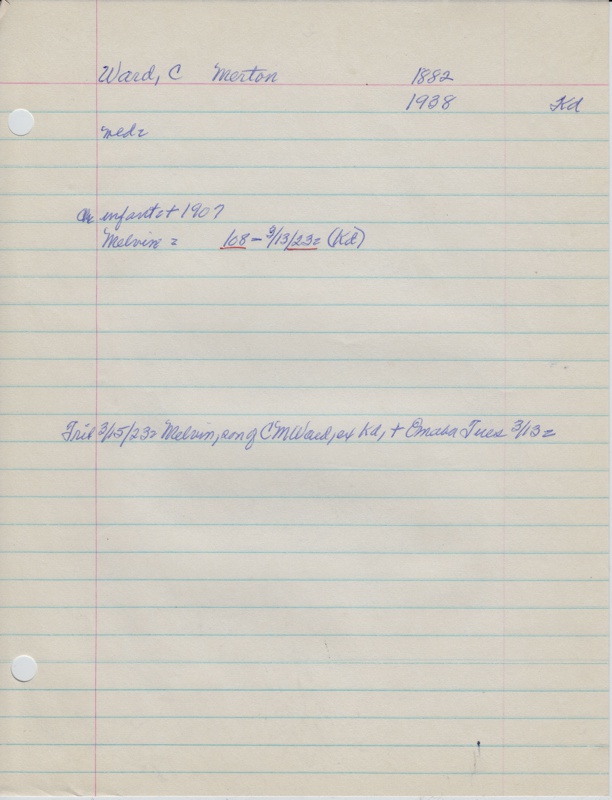 Ward, C Merton 1882
1938 Kd
wed=
Ch infant=+ 1907
Melvin = 108 - 9/13/23= (Kd)
Trib 3/15/23= Melvin, son of CMWard, ex Kd, + Omaha Tues 3/13=